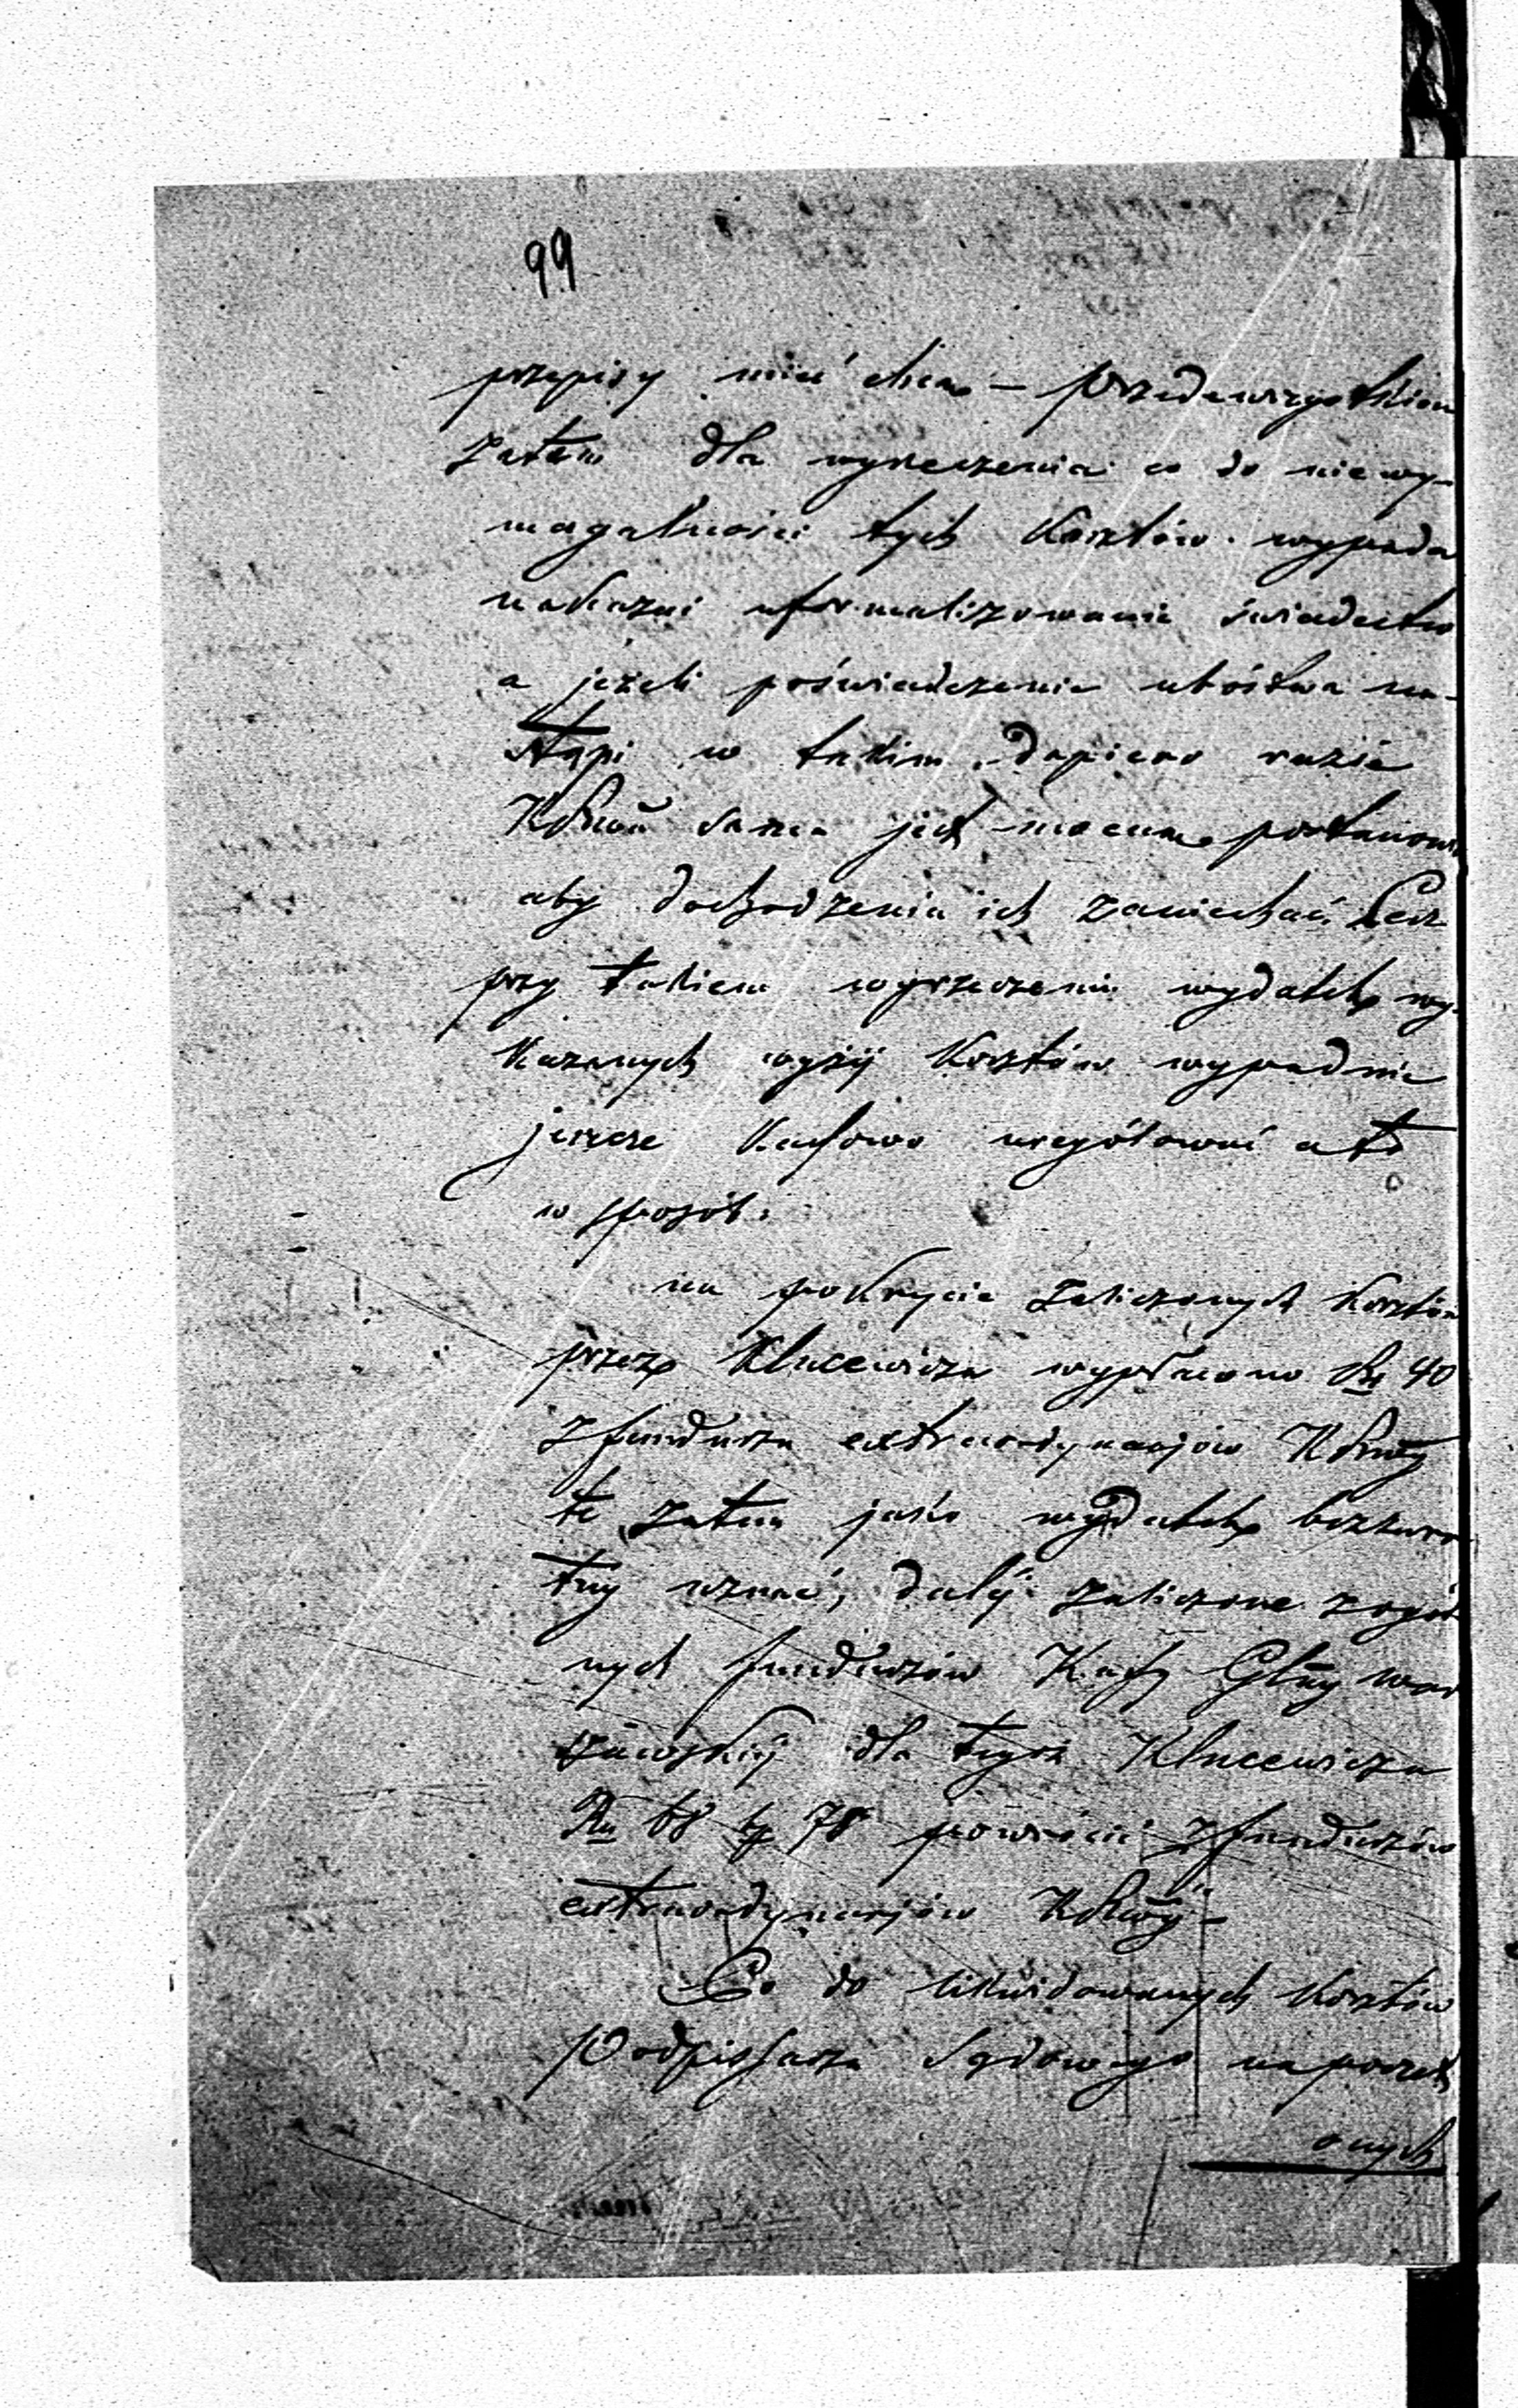 99
przepisy mieć chcą – przedewszystkiem
zatem dla wyrzeczenia co do niewy-
magalności tych kosztów wypada
nakazać uformalizowanie świadectw
a jeżeli poświadczenie ubóstwa na-
stąpi w takim dopiero razie
sama jest mocna postanowić
aby dochodzenia ich zaniechać. Lecz
przy takiem wyrzeczeniu wydatek wy-
kazanych wyżej kosztów wypadnie
jeszcze kassowo uregulować a to
w sposób:
na pokrycie zaliczonych kosztów
przez Klucewicza wypłacono Rs 40
z funduszu extraordynarjów
te zatem jako wydatek bezzwro
tny uznać, daléj zaliczone z ogól
nych funduszów Kassy Głnéj War
szawskiéj dla tegoż Klucewicza
Rs 68 k 78 powrócić z funduszów
extraordynarjów
Co do likwidowanych kosztów
Podpissarza Sądowego
onych